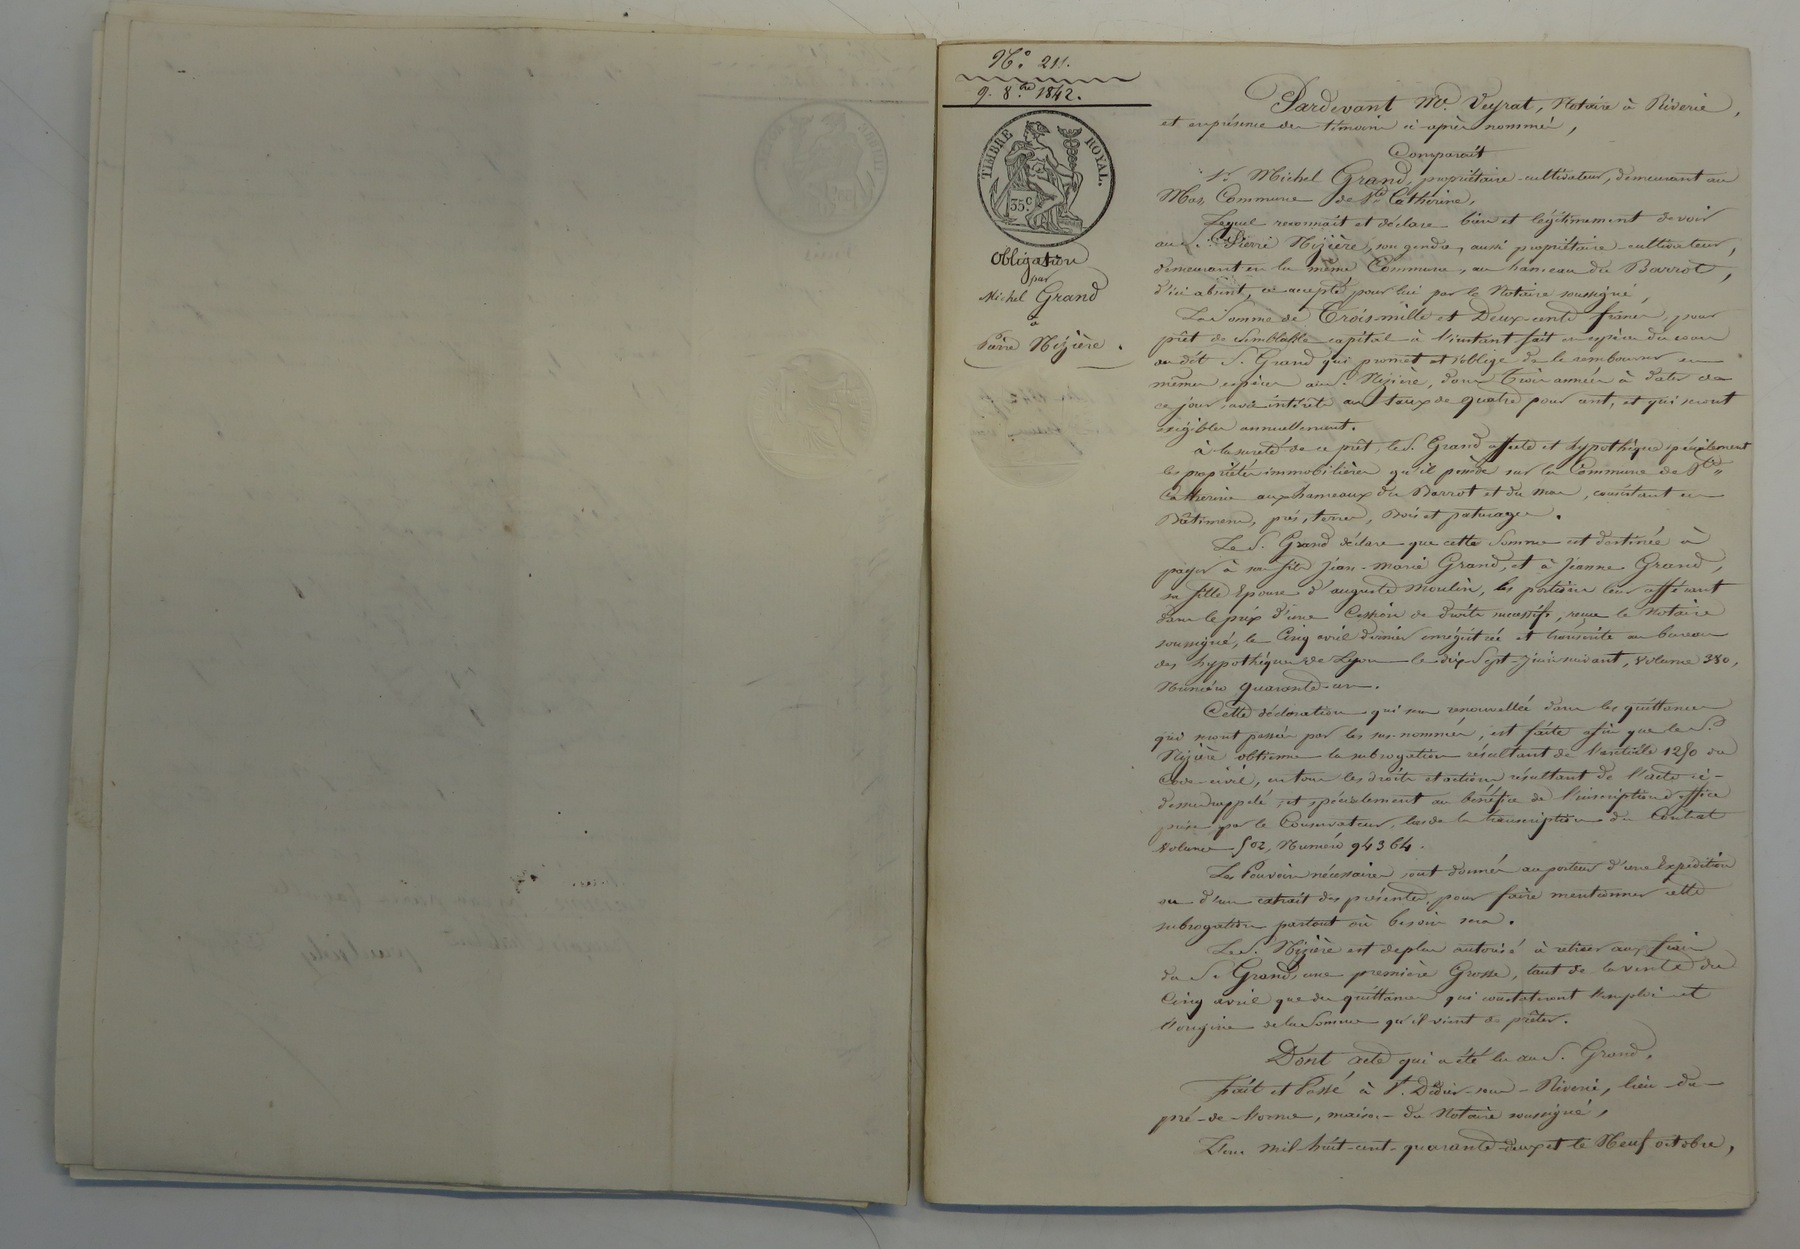 N.° 211.
9. 8.bre 1842.
TIMBRE ROYAL.
35.c
Obligation
par
Michel Grand
à
Pierre Nizière.
Pardevant M.e Veyrat, Notaire à Riverie,
et en présence des témoins ci-après nommés,
Comparait
S.r Michel Grand, propriétaire-cultivateur, demeurant au
Mas, Commune de S.te Catherine,
Lequel reconnait et déclare bien et légitimement devoir
au S.r Pierre Nizière, son gendre, aussi propriétaire-cultivateur,
demeurant en la même Commune, au hameau du Barrot,
d'ici absent, ce accepté pour lui par le Notaire soussigné,
La Somme de Trois-mille et Deux-cents francs, pour
prêt de Semblable capital à l'instant fait en espèces du cours
au dit S. Grand qui promet et s'oblige de le rembourser en
mêmes espèces au S. Nizière, dans Trois années à dater de
ce jour, avec intérêts au taux de quatre pour cent, et qui seront
exigibles annuellement.
à la sureté de ce prêt, le S. Grand affecte et hypothèque spécialement
les propriétés immobilières qu'il possède sur la Commune de S.te
Catherine aux hameaux du Barrot et du mas, consistant en
Bâtimens, prés, terres, Bois et paturages.
Le S. Grand déclare que cette Somme est destinée à
payer à son fils Jean-Marie Grand, et à Jeanne Grand,
sa fille Epouse d'auguste Moulin, les portions leur afférant
dans le prix d'une Cession de droits successifs, reçue le Notaire
soussigné, le Cinq avril dernier enrégistrée et transcrite au bureau
des hypothèques de Lyon le dix-Sept-Juin suivant, volume 380,
Numéro quarante-un.
Cette déclaration qui sera renouvellée dans les quittances
qui seront passées par les sus-nommés, est faite afin que le S.
Nizière obtienne la subrogation résultant de l'article 1250 du
Code-civil, en tous les droits et actions résultant de l'acte ci-
dessus rappelé, et spécialement au bénéfice de l'inscription d'office
prise par le Conservateur, lors de la transcription du Contrat
volume 502, Numéro 94364.
Les Pouvoirs nécessaires sont donnés au porteur d'une Expédition
ou d'un extrait des présentes, pour faire mentionner cette
subrogation partout où besoin sera.
Le S. Nizière est de plus autorisé à retirer aux frais
du S. Grand, une première Grosse, tant de la vente du
Cinq avril que des quittances qui constateront l'emploi et
l'origine de la Somme qu'il vient de prêter.
Dont acte qui a été lu au S. Grand.
Fait et Passé à S.t Didier-sous-Riverie, lieu du
pré-de-lorme, maison du Notaire soussigné,
L'an mil-huit-cent-quarante-deux et le Neuf octobre,